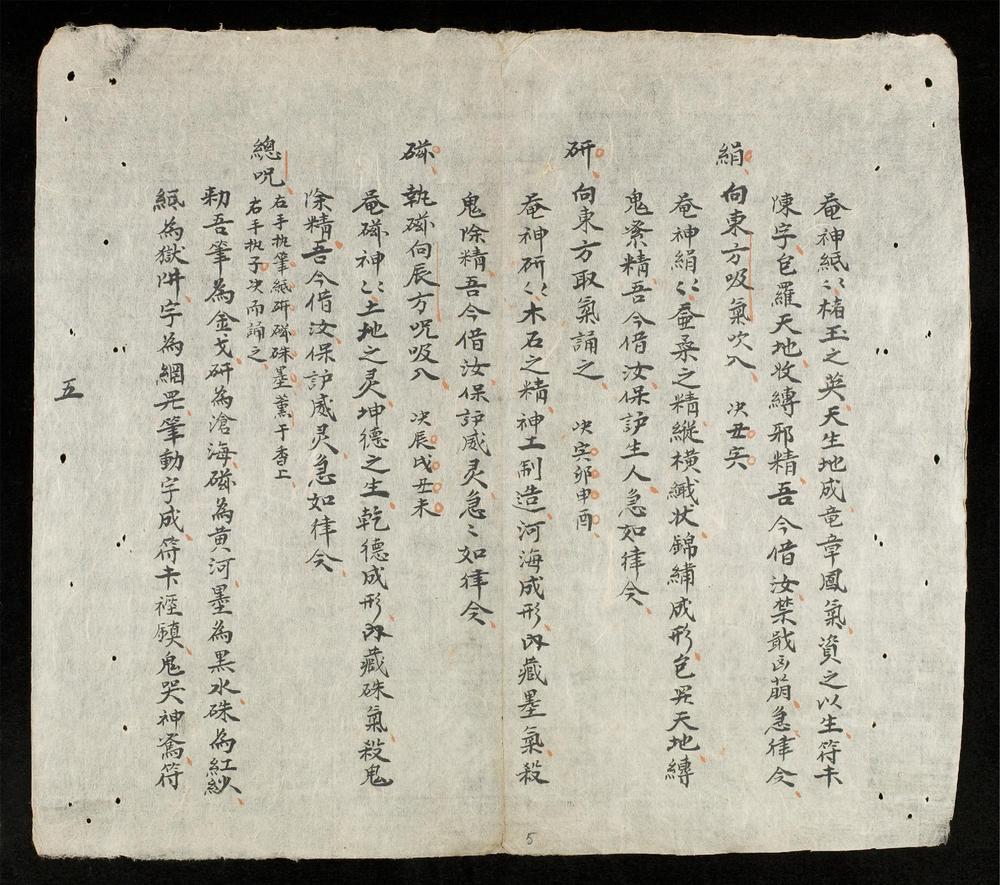 奄神紙〻楮玉之英天生地成竜章鳳氣資之以生符卡
陳字包羅天地收縛邪精吾今借汝禁戢凶萠急律令
絹 向東方吸氣吹入 决丑寅
奄神絹〻蚕桑之精縱橫織状錦繍成形包罘天地縳
鬼素精吾今借汝保护生人急如律令
研 向東方取氣誦之 决寅卯申酉
奄神研〻木石之精神工制造河海成形内藏墨氣殺
鬼除精吾今借汝保护威灵急〻如律令
磁 執磁向辰方呪吸入 决辰戌丑未
奄磁神〻土地之灵坤德之生乾德成形内藏硃氣殺鬼
除精吾今借汝保护威灵急如律令
總呪 右手执筆紙研磁硃墨薰于香上
右手执子决而誦之
勑吾筆為金戈研為滄海磁為黄河墨為黒水硃為紅紗
紙為獄阱字為網罘筆動字成符卡 鎮鬼哭神驚符
五
5